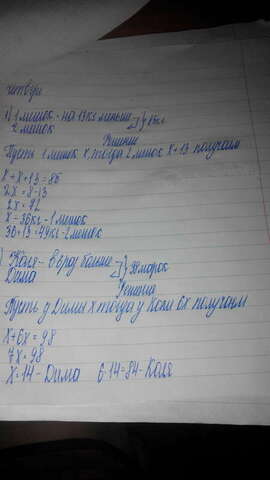 1) 1 мешок - на 13кг меньше
2 мешок
Решение
Пусть 1 мешок х, тогда 2 мешок х+13 получаем
х+х+13=85
2х=8-13
2х=72
х=36кг-1 мешок
36+13=49кг-2 мешок
Коля- в 6 раз больше
Дима
98 марок
Решение
Пусть у Димы х тогда у Коли 6х получаем
х+6х=98
7х=98
х=14- Дима 6·14=84- Коля